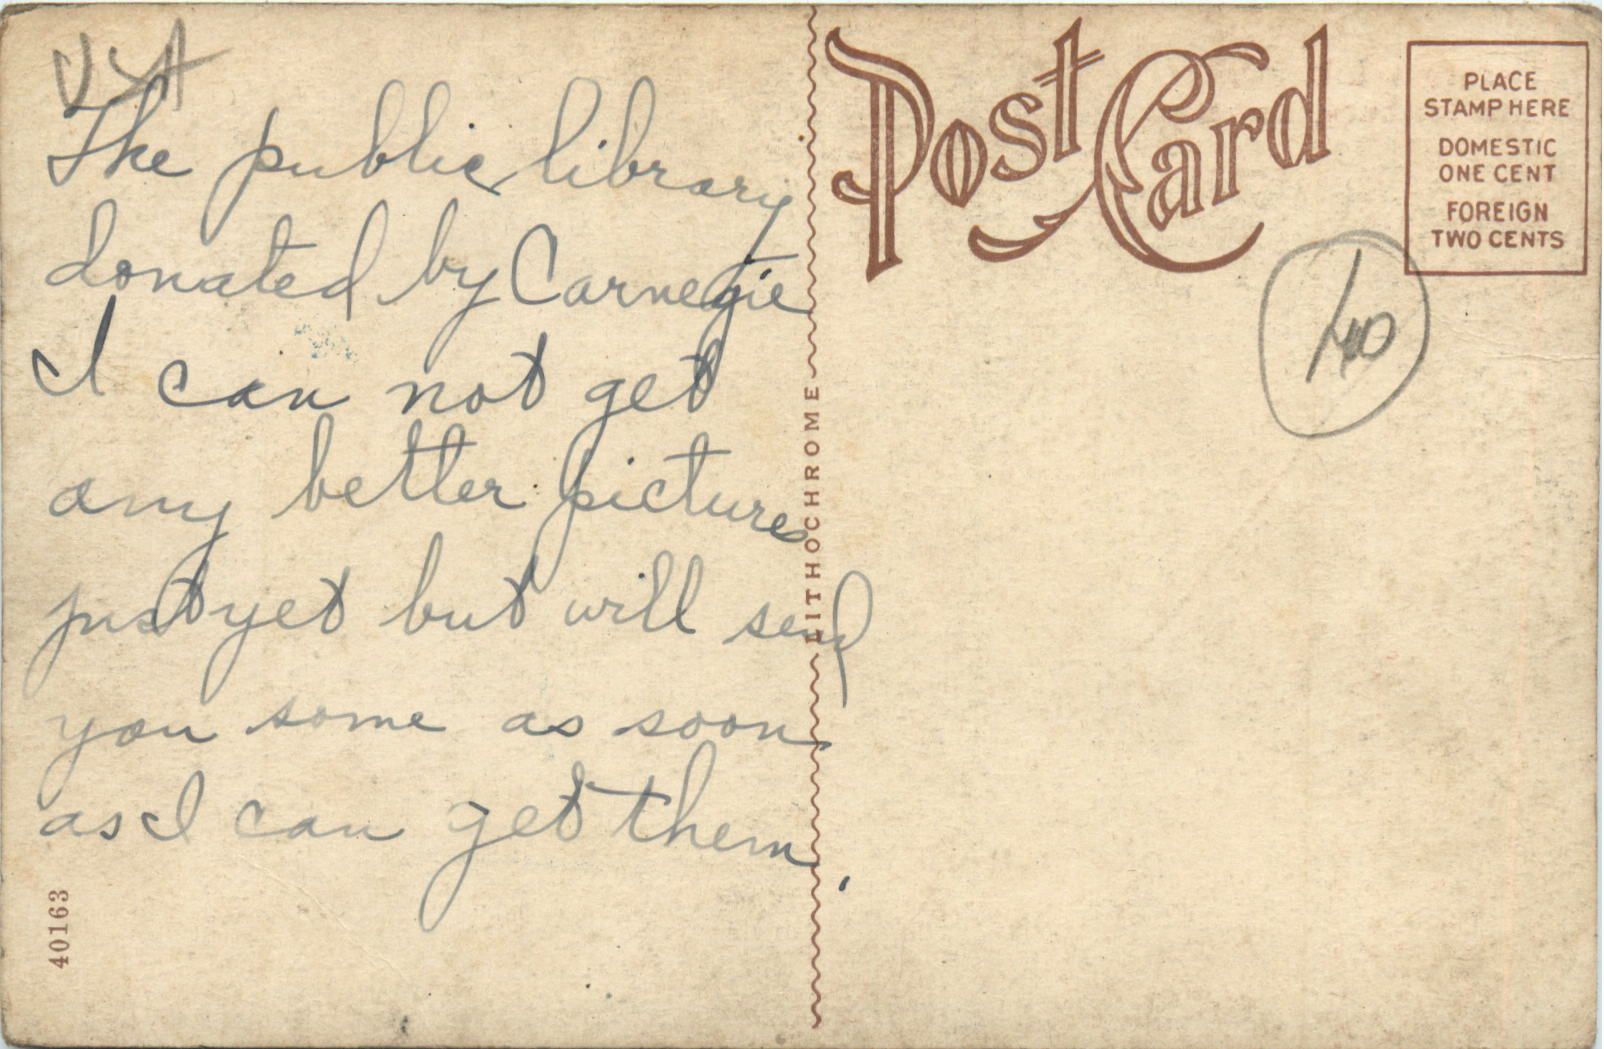 The public library
donated by Carnegie
I can not get
any better pictures
just yet but will send
you some as soon
as I can get them.
40163
LITHOCHROME
Post Card
PLACE
STAMP HERE
DOMESTIC
ONE CENT
FOREIGN
TWO CENTS